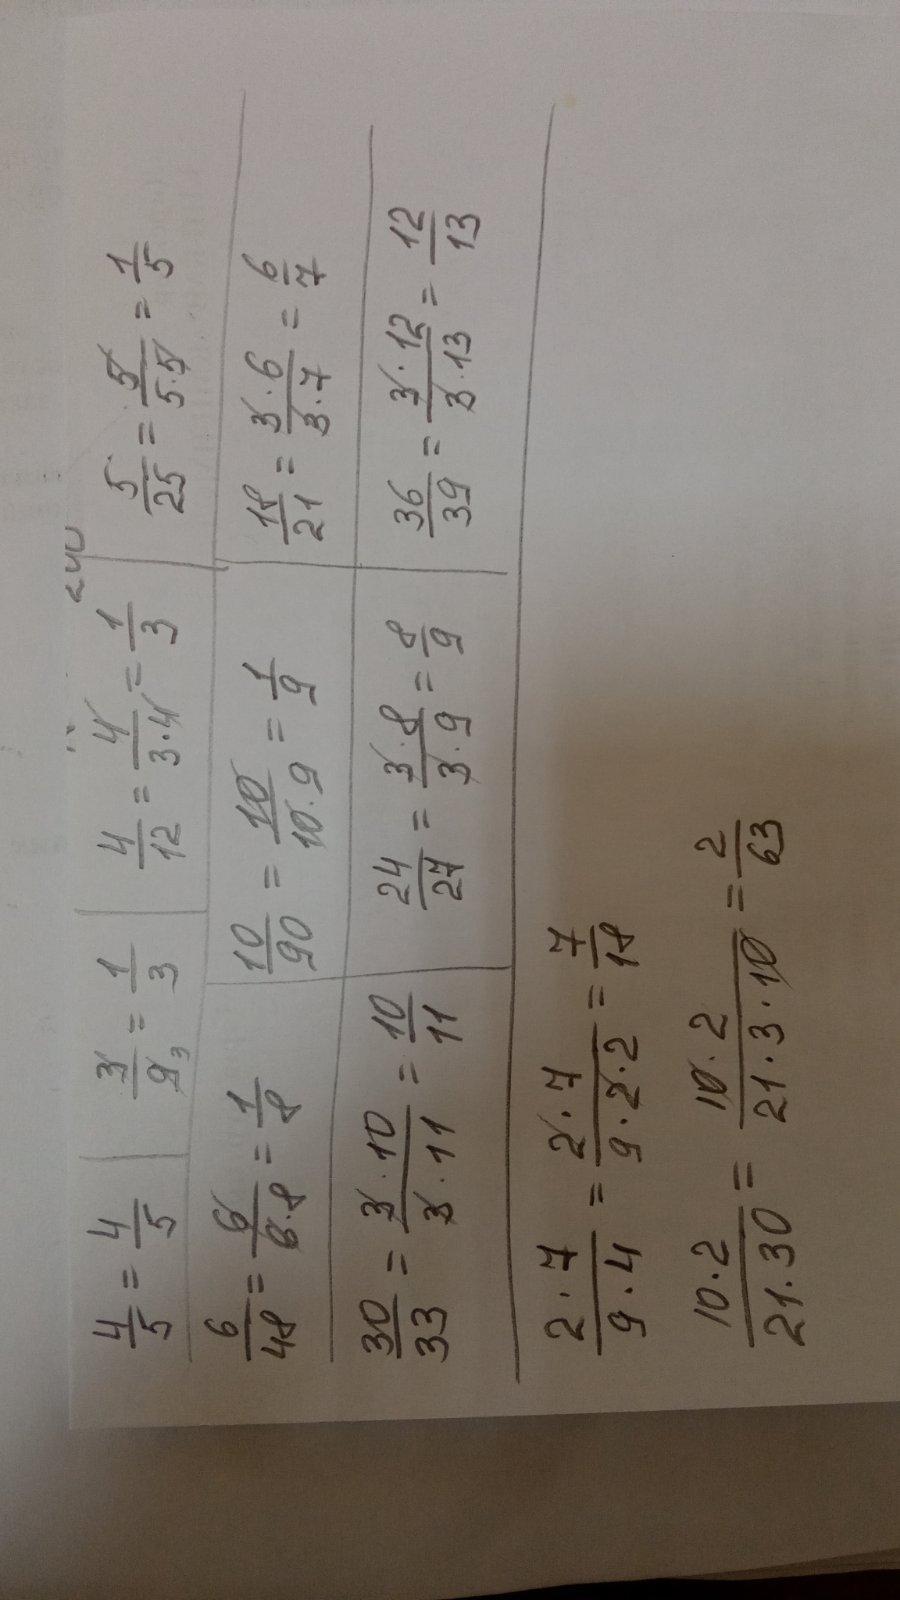 4/5 = 4/5 | 3/9₃ = 1/3 | 4/12 = 4/3·4 = 1/3 | 5/25 = 5/5·5 = 1/5
6/48 = 6/6·8 = 1/8 | 10/90 = 10/10·9 = 1/9 | 18/21 = 3·6/3·7 = 6/7
30/33 = 3·10/3·11 = 10/11 | 24/27 = 3·8/3·9 = 8/9 | 36/39 = 3·12/3·13 = 12/13
2·7/9·4 = 2·7/9·2·2 = 7/18
10·2/21·30 = 10·2/21·3·10 = 2/63